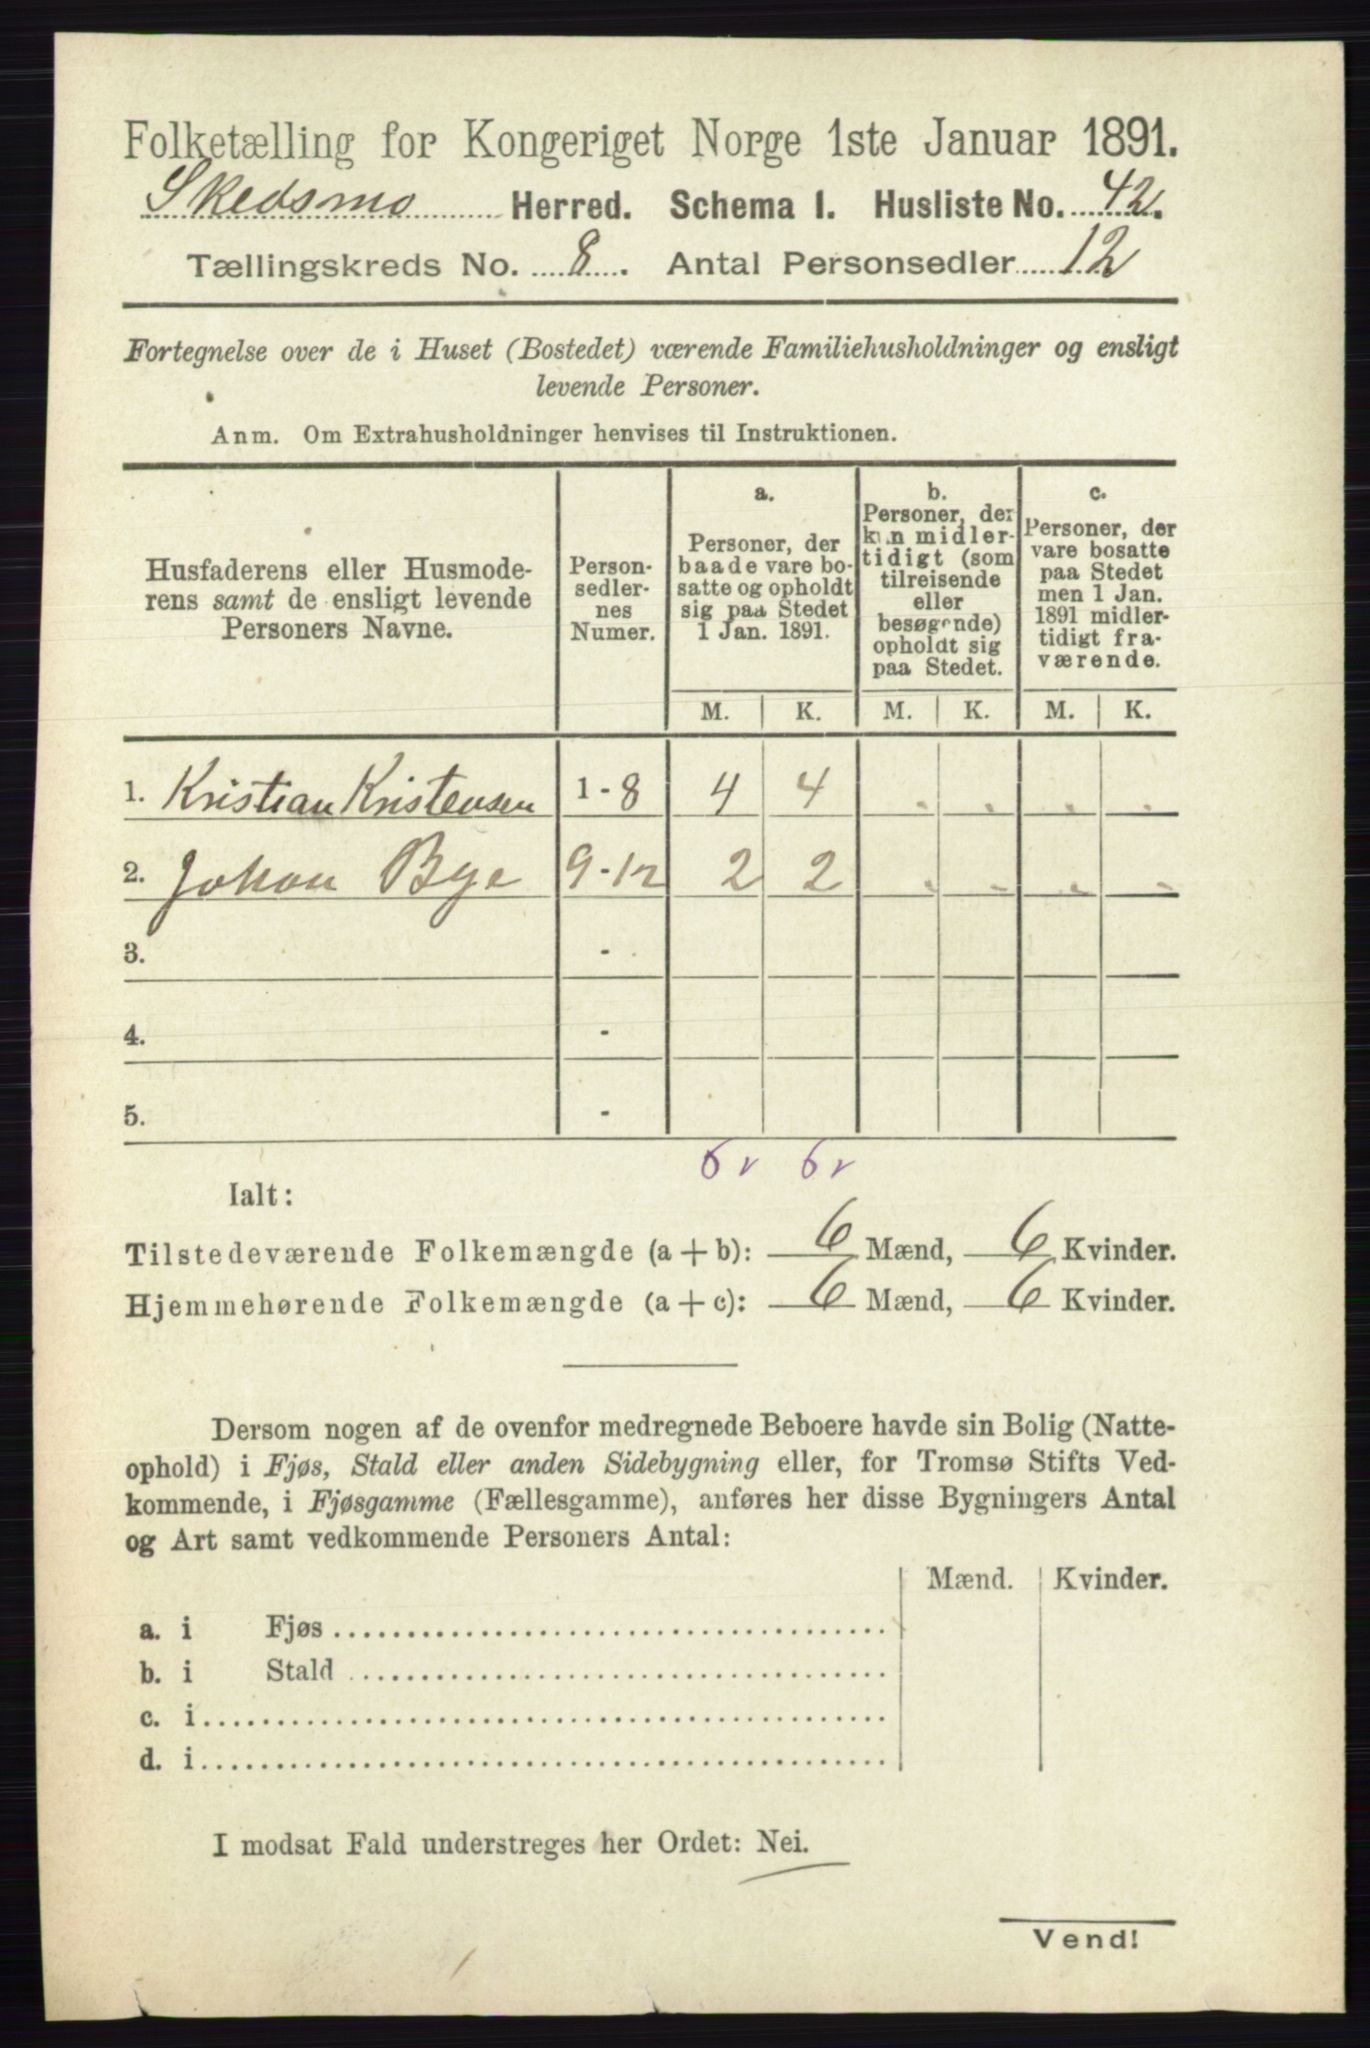 Folketælling for Kongeriget Norge 1ste Januar 1891.
Skedsmo Herred. Schema 1. Husliste No. 42.
Tællingskreds No. 8. Antal Personsedler 12
Fortegnelse over de i Huset (Bostedet) værende Familiehusholdninger og ensligt
levende Personer.
Anm. Om Extrahusholdninger henvises til Instruktionen.
Husfaderens eller Husmode-
rens samt de ensligt levende
Personers Navne.
Person-
sedler-
nes
Numer.
a.
Personer, der
baade vare bo-
satte og opholdt
sig paa Stedet
1 Jan. 1891.
b.
Personer, der
kun midler-
tidigt (som
tilreisende
eller
besøgende)
opholdt sig
paa Stedet.
c.
Personer, der
vare bosatte
paa Stedet
men 1 Jan.
1891 midler-
tidigt fra-
værende.
M. K. M. K. M. K.
1. Kristian Kristensen 1-8 4 4 - - - -
2. Johan Bye 9-12 2 2 - - - -
3. -
4. -
5. -
6 v 6 v
Ialt:
Tilstedeværende Folkemængde (a + b): 6 Mænd, 6 Kvinder.
Hjemmehørende Folkemængde (a + c): 6 Mænd, 6 Kvinder.
Dersom nogen af de ovenfor medregnede Beboere havde sin Bolig (Natte-
ophold) i Fjøs, Stald eller anden Sidebygning eller, for Tromsø Stifts Ved-
kommende, i Fjøsgamme (Fællesgamme), anføres her disse Bygningers Antal
og Art samt vedkommende Personers Antal:
Mænd. Kvinder.
a. i Fjøs
b. i Stald
c. i
d. i
I modsat Fald understreges her Ordet: Nei.
Vend!